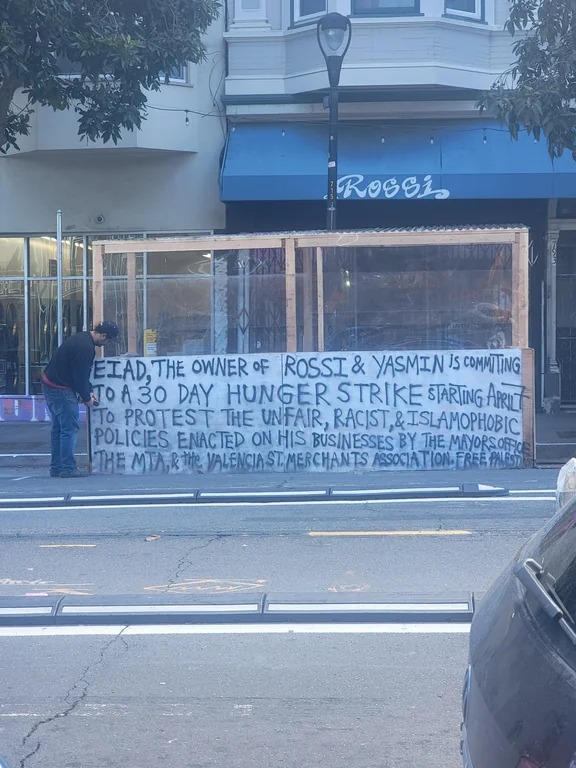 Rossi
EIAD, THE OWNER OF ROSSI & YASMIN IS COMMITING
TO A 30 DAY HUNGER STRIKE STARTING APRIL 7
TO PROTEST THE UNFAIR, RACIST, & ISLAMOPHOBIC
POLICIES ENACTED ON HIS BUSINESSES BY THE MAYORS OFFICE
THE MTA, & THE VALENCIA ST. MERCHANTS ASSOCIATION. FREE PALESTINE